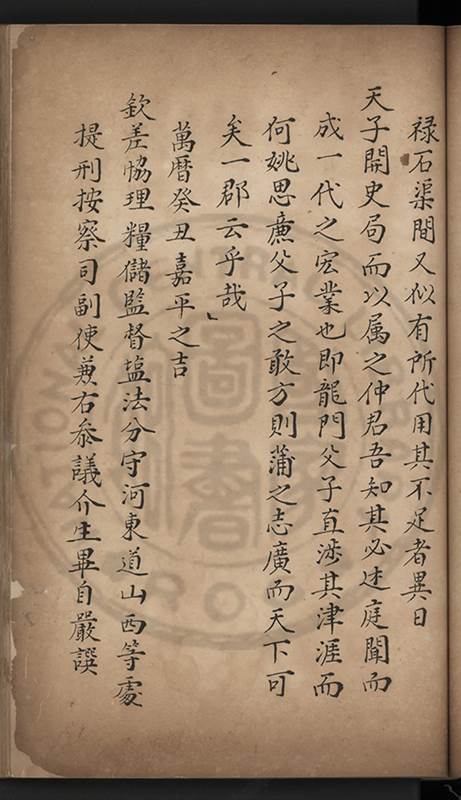 祿石渠間又似有所代用其不足者異日
天子開史局而以属之仲君吾知其必述庭聞而
成一代之宏業也即龍門父子直涉其津涯而
何姚思廉父子之敢方則蒲之志廣而天下可
矣一郡云乎哉
萬曆癸丑嘉平之吉
欽差恊理糧儲監督塩法分守河東道山西等處
提刑按察司副使兼右叅議介生畢自嚴譔
圖書